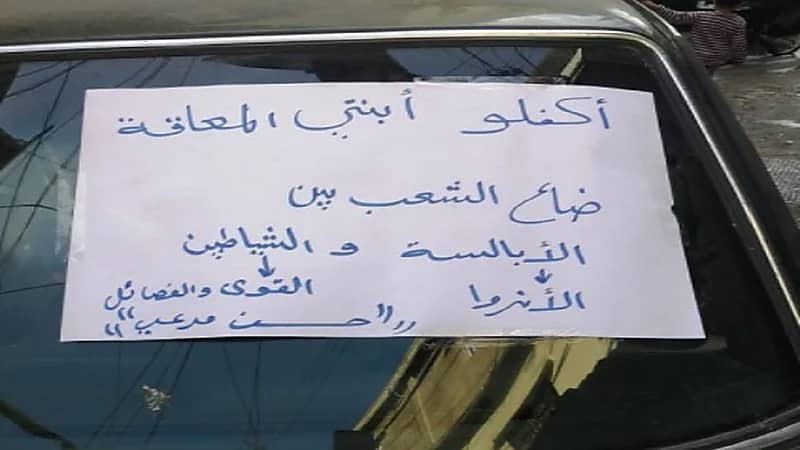 أكفلو أبنتي المعاقة
ضاع الشعب بين
الأبالسة و الشياطين
↓ ↓
الأنروا القوى والفصائل
"حسن مرعب"